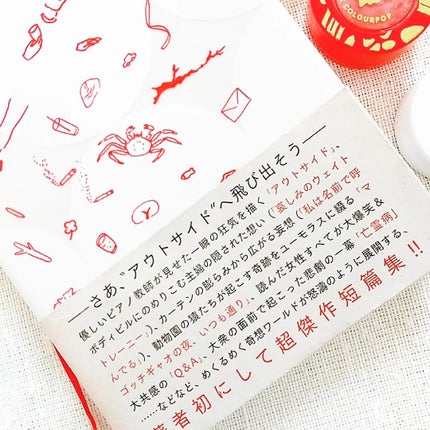 COLOURPOP
――さあ、"アウトサイド"へ飛び出そう――
優しいピアノ教師が見せた一瞬の狂気を描く「アウトサイド」、
ボディビルにのめりこむ主婦の隠された想い(「哀しみのウェイト
トレーニー」)、カーテンの膨らみから広がる妄想(「私は名前で呼
んでる」)、動物園の猿たちが起こす奇跡をユーモラスに綴る「マ
ゴッチギャオの夜、いつも通り」、読んだ女性すべてが大爆笑&
大共感の「Q&A」、大衆の面前で起こった悲劇の一幕「亡霊病」
……などなど、めくるめく奇想ワールドが怒濤のように展開する、
著者初にして超傑作短篇集!!